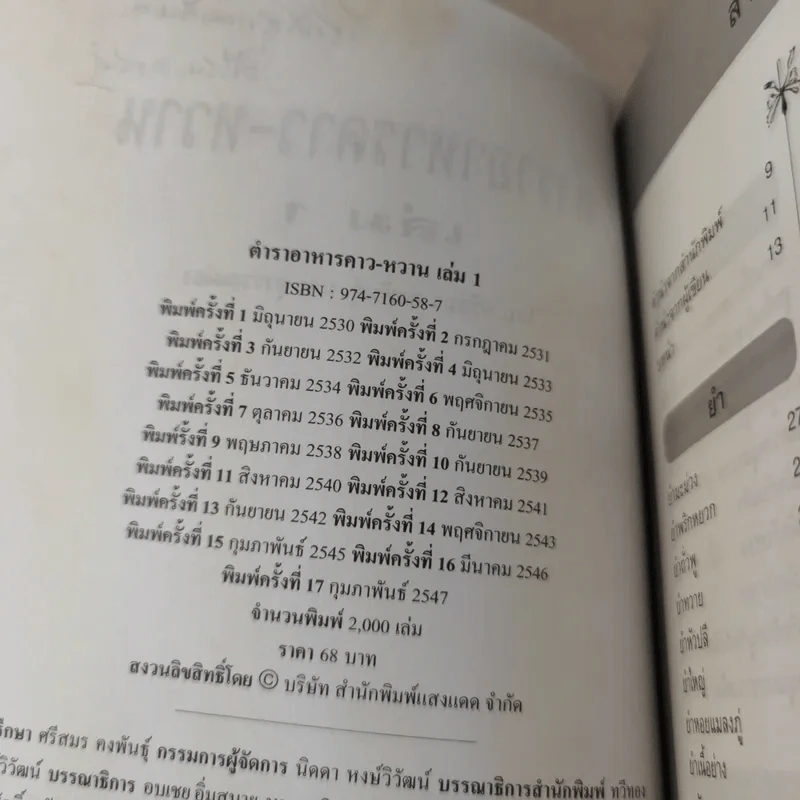 ตำราอาหารคาว-หวาน เล่ม 1
ISBN : 974-7160-58-7
พิมพ์ครั้งที่ 1 มิถุนายน 2530 พิมพ์ครั้งที่ 2 กรกฎาคม 2531
พิมพ์ครั้งที่ 3 กันยายน 2532 พิมพ์ครั้งที่ 4 มิถุนายน 2533
พิมพ์ครั้งที่ 5 ธันวาคม 2534 พิมพ์ครั้งที่ 6 พฤศจิกายน 2535
พิมพ์ครั้งที่ 7 ตุลาคม 2536 พิมพ์ครั้งที่ 8 กันยายน 2537
พิมพ์รั้งที่ 9 พฤษภาคม 2538 พิมพ์ครั้งที่ 10 กันยายน 2539
พิมพ์ครั้งที่ 11 สิงหาคม 2540 พิมพ์ครั้งที่ 12 สิงหาคม 2541
พิมพ์ครั้งที่ 13 กันยายน 2542 พิมพ์ครั้งที่ 14 พฤศจิกายน 2543
พิมพ์ครั้งที่ 15 กุมภาพันธ์ 2545 พิมพ์ครั้งที่ 16 มีนาคม 2546
พิมพ์ครั้งที่ 17 กุมภาพันธ์ 2547
จำนวนพิมพ์ 2,000 เล่ม
ราคา 68 บาท
สงวนลิขสิทธิ์โดย © บริษัท สำนักพิมพ์แสงแดด จำกัด
ศรีสมร คงพันธุ์ กรรมการผู้จัดการ นิดดา หงษ์วิวัฒน์ บรรณาธิการสำนักพิมพ์ ทวีทอง
บรรณาธิการ อบเชย อิ่มสบาย
9
11
13
ยำ
ยำมะม่วง
ยำพริกหยวก
ยำถั่วพู
ยำทวาย
ยำหัวปลี
ยำใหญ่
ยำหอยแมลงภู่
ยำเนื้อย่าง